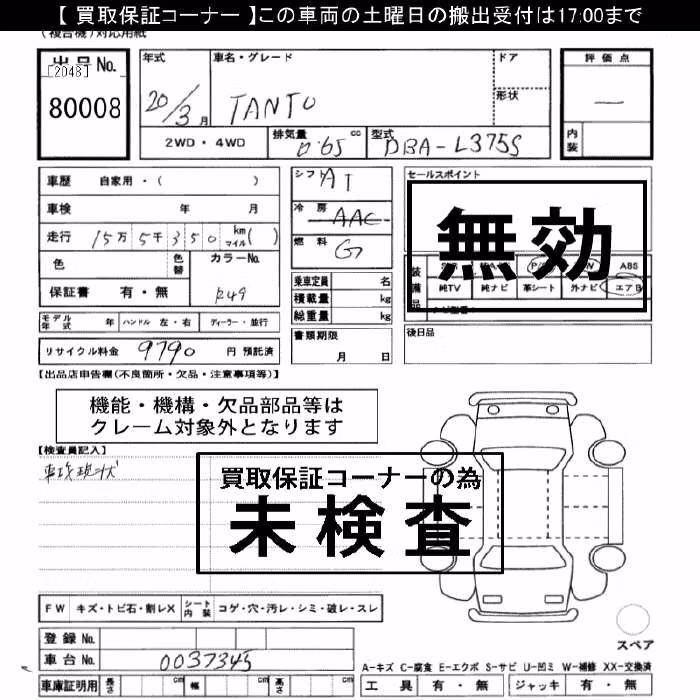 【 買取保証コーナー 】この車両の土曜日の搬出受付は17:00まで
(複合機)対応用紙
出品No.
[2048]
80008
年式
20/3月
車名・グレード
TANTO
ドア
形状
評価点
—
内装
2WD・4WD
排気量
0.65 cc
型式
DBA-L375S
車歴 自家用・( )
車検 年 月
走行 15万5千350 km マイル( )
色
色替
カラーNo.
R49
保証書 有・無
シフト AT
冷房 AAC
燃料 G
セールスポイント
無効
ABS
純TV 純ナビ 革シート 外ナビ エアB
乗車定員 名
積載量 kg
総重量 kg
モデル年式 年 ハンドル 左・右 ディーラー・並行
後日品
リサイクル料金 9790 円 預託済
書類期限
月 日
【出品店申告欄(不良箇所・欠品・注意事項等)】
機能・機構・欠品部品等は
クレーム対象外となります
【検査員記入】
車攻現状
買取保証コーナーの為
未検査
FW キズ・トビ石・割レX シート内装 コゲ・穴・汚レ・シミ・破レ・スレ
スペア
登録No.
車台No. 0037345
A-キズ C-腐食 E-エクボ S-サビ U-凹ミ W-補修 XX-交換済
車庫証明用 長さ cm 幅 cm 高さ cm
工具 有・無 ジャッキ 有・無